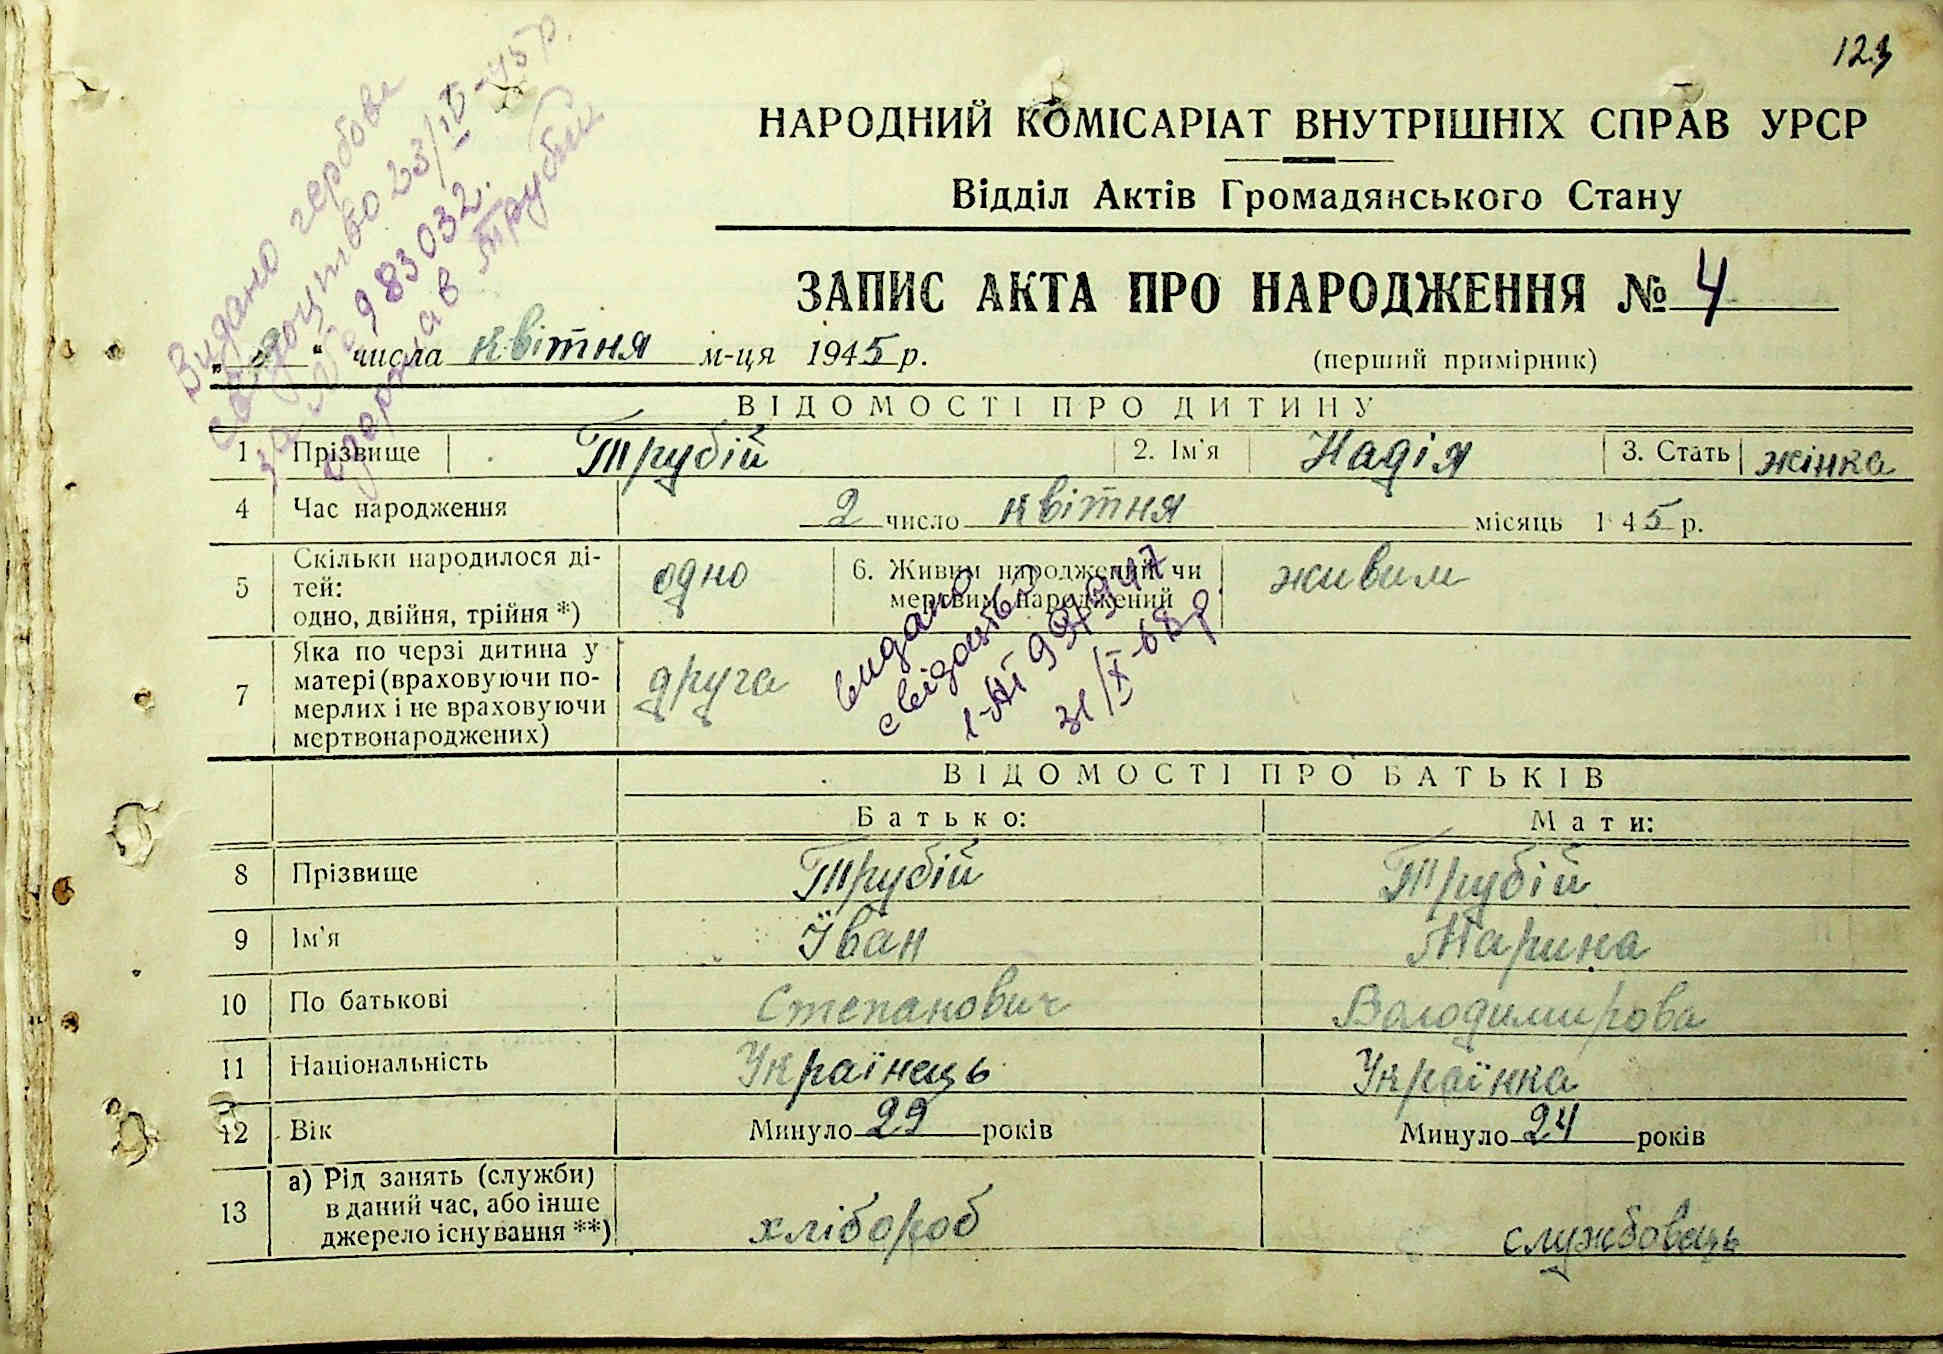 123
НАРОДНИЙ КОМІСАРІАТ ВНУТРІШНІХ СПРАВ УРСР
Відділ Актів Громадянського Стану
ЗАПИС АКТА ПРО НАРОДЖЕННЯ № 4
(перший примірник)
Видано гербове
свідоцтво 23/IV-45р.
за № 983032.
одержав Трубій
" числа квітня м-ця 1945 р.
ВІДОМОСТІ ПРО ДИТИНУ
1 Прізвище Трубій 2. Ім'я Надія 3. Стать жінка
4 Час народження 2 число квітня місяць 1945 р.
5 Скільки народилося ді-
тей:
одно, двійня, трійня *) одно
6. Живим народжений чи
мертвим народжений живим
7 Яка по черзі дитина у
матері (враховуючи по-
мерлих і не враховуючи
мертвонароджених) друга
видано
свідоцтво
31/X-68р.
ВІДОМОСТІ ПРО БАТЬКІВ
Батько: Мати:
8 Прізвище Трубій Трубій
9 Ім'я Їван Марина
10 По батькові Степанович Володимирова
11 Національність Українець Українка
12 Вік Минуло 29 років Минуло 24 років
13 а) Рід занять (служби)
в даний час, або інше
джерело існування **) хлібороб службовець